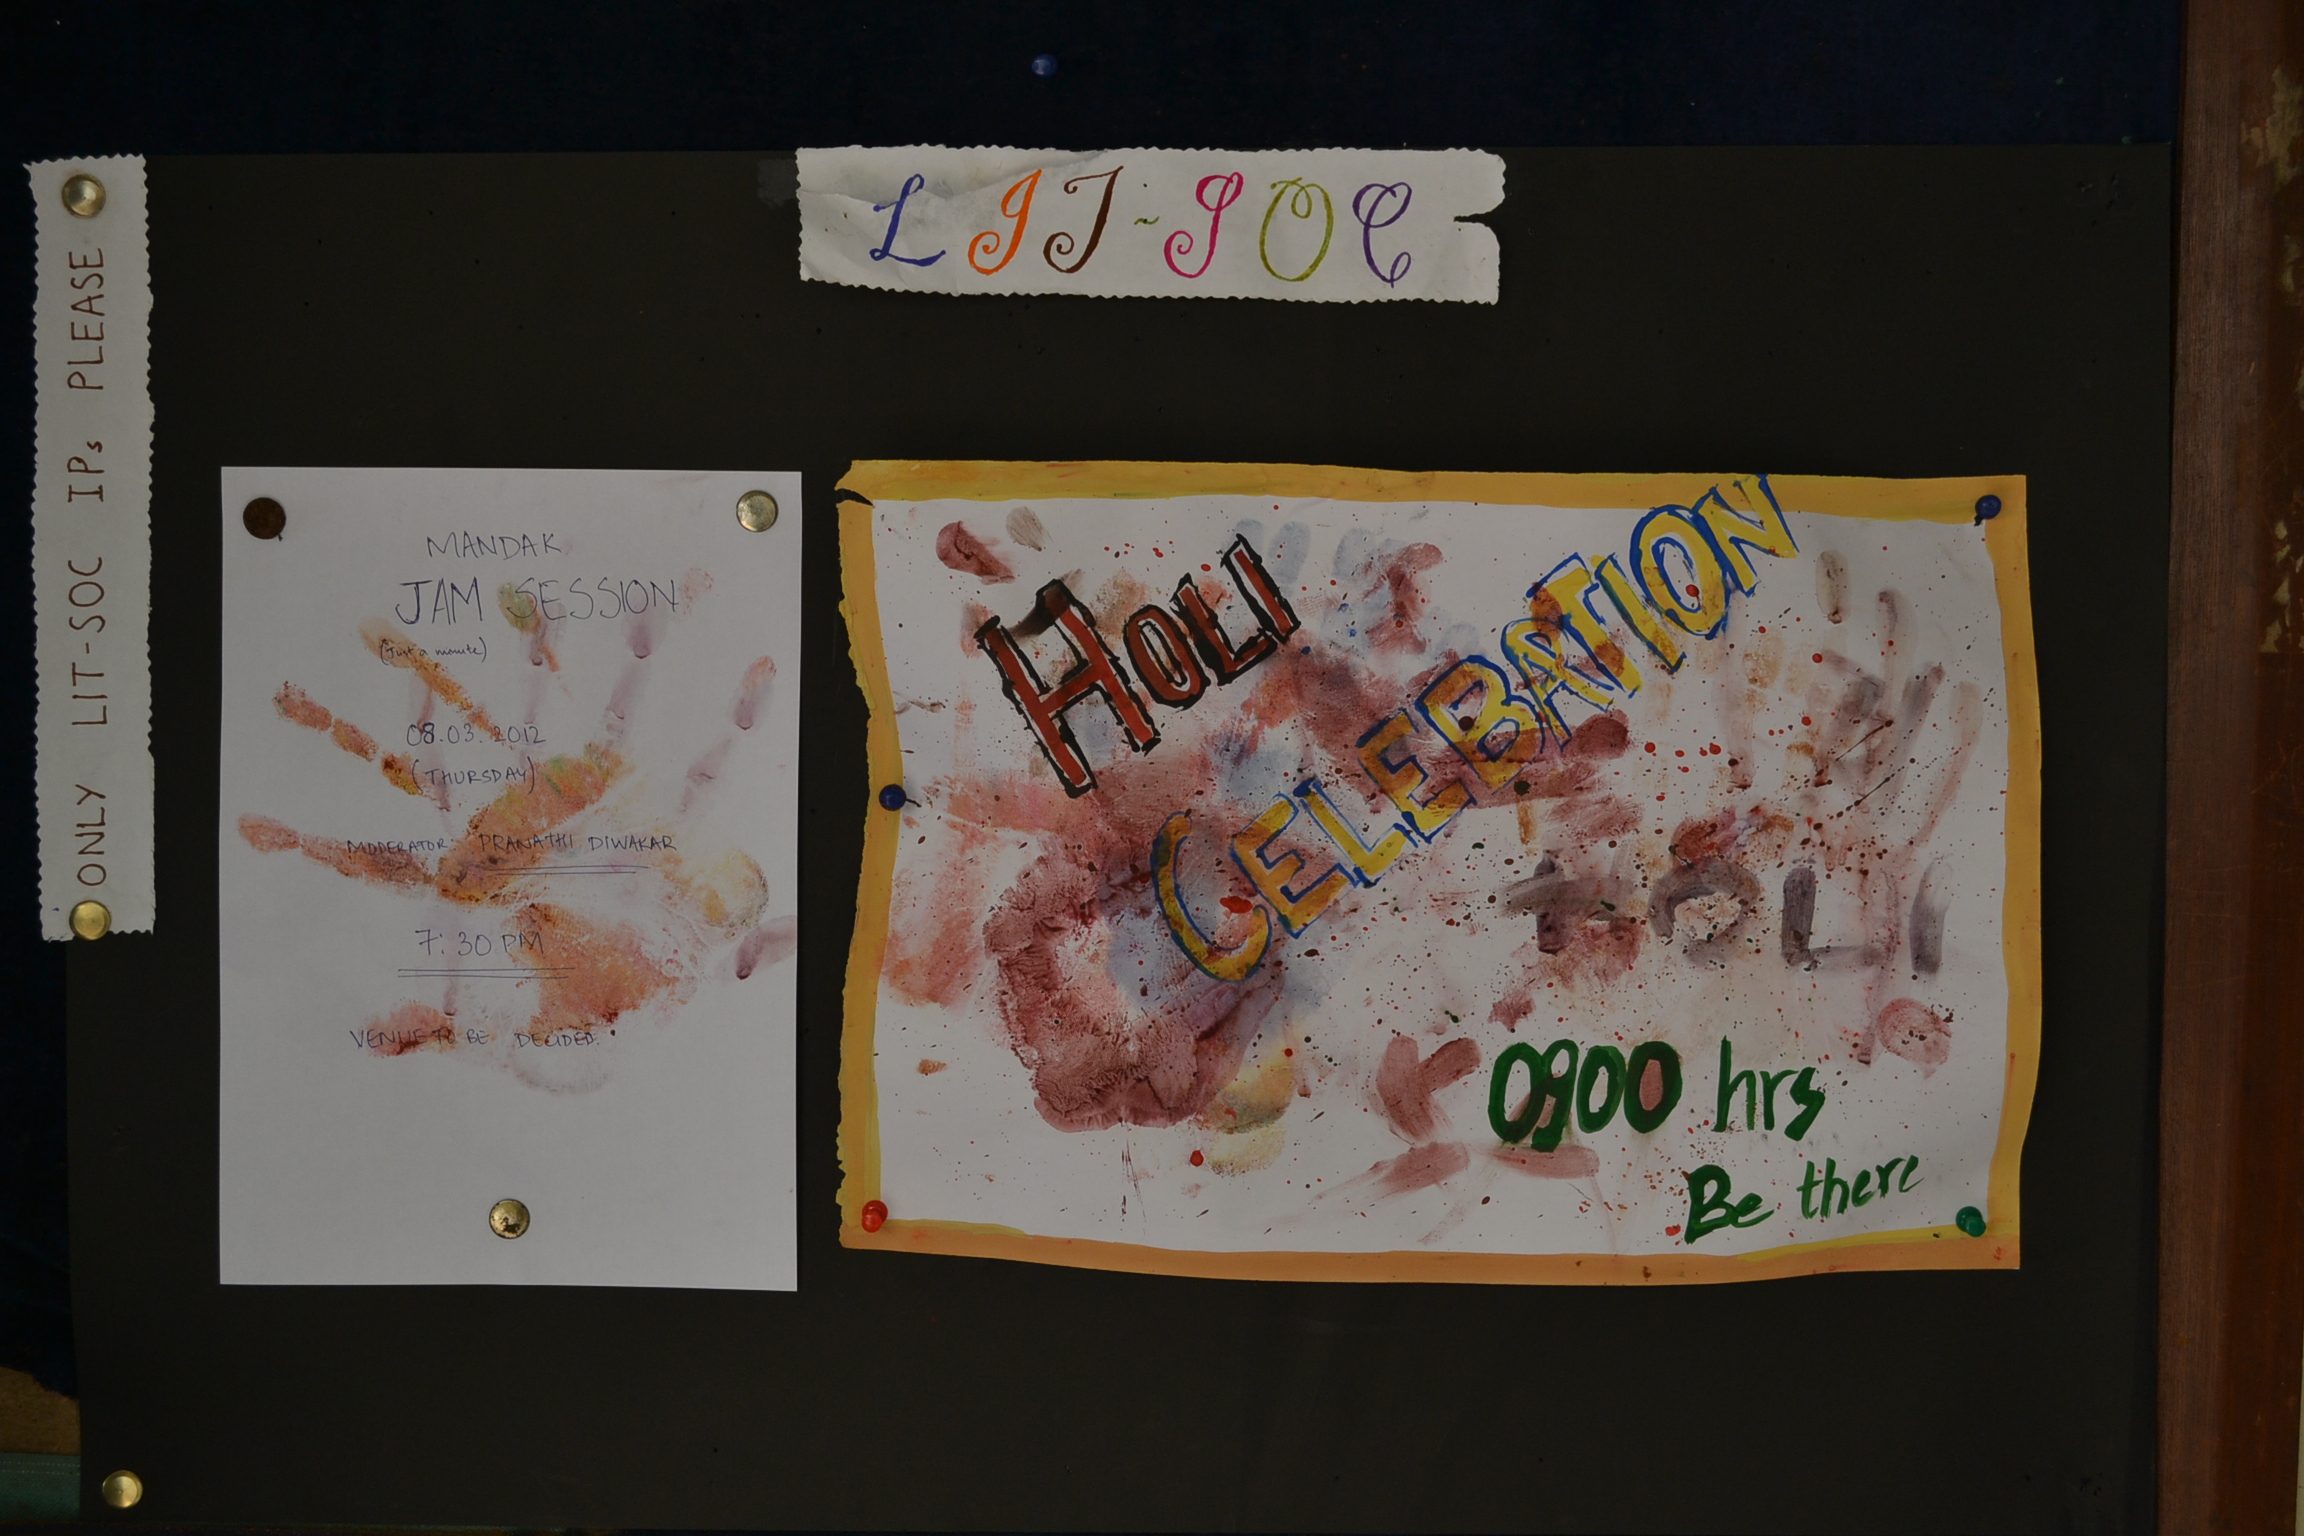 LIT-SOC
ONLY LIT-SOC IPs PLEASE
MANDAK
JAM SESSION
(Just a minute)
08.03.2012
(THURSDAY)
MODERATOR: PRANATHI DIWAKAR
7:30 PM
VENUE TO BE DECIDED.
HOLI
CELEBATION
HOLI
0900 hrs
Be there